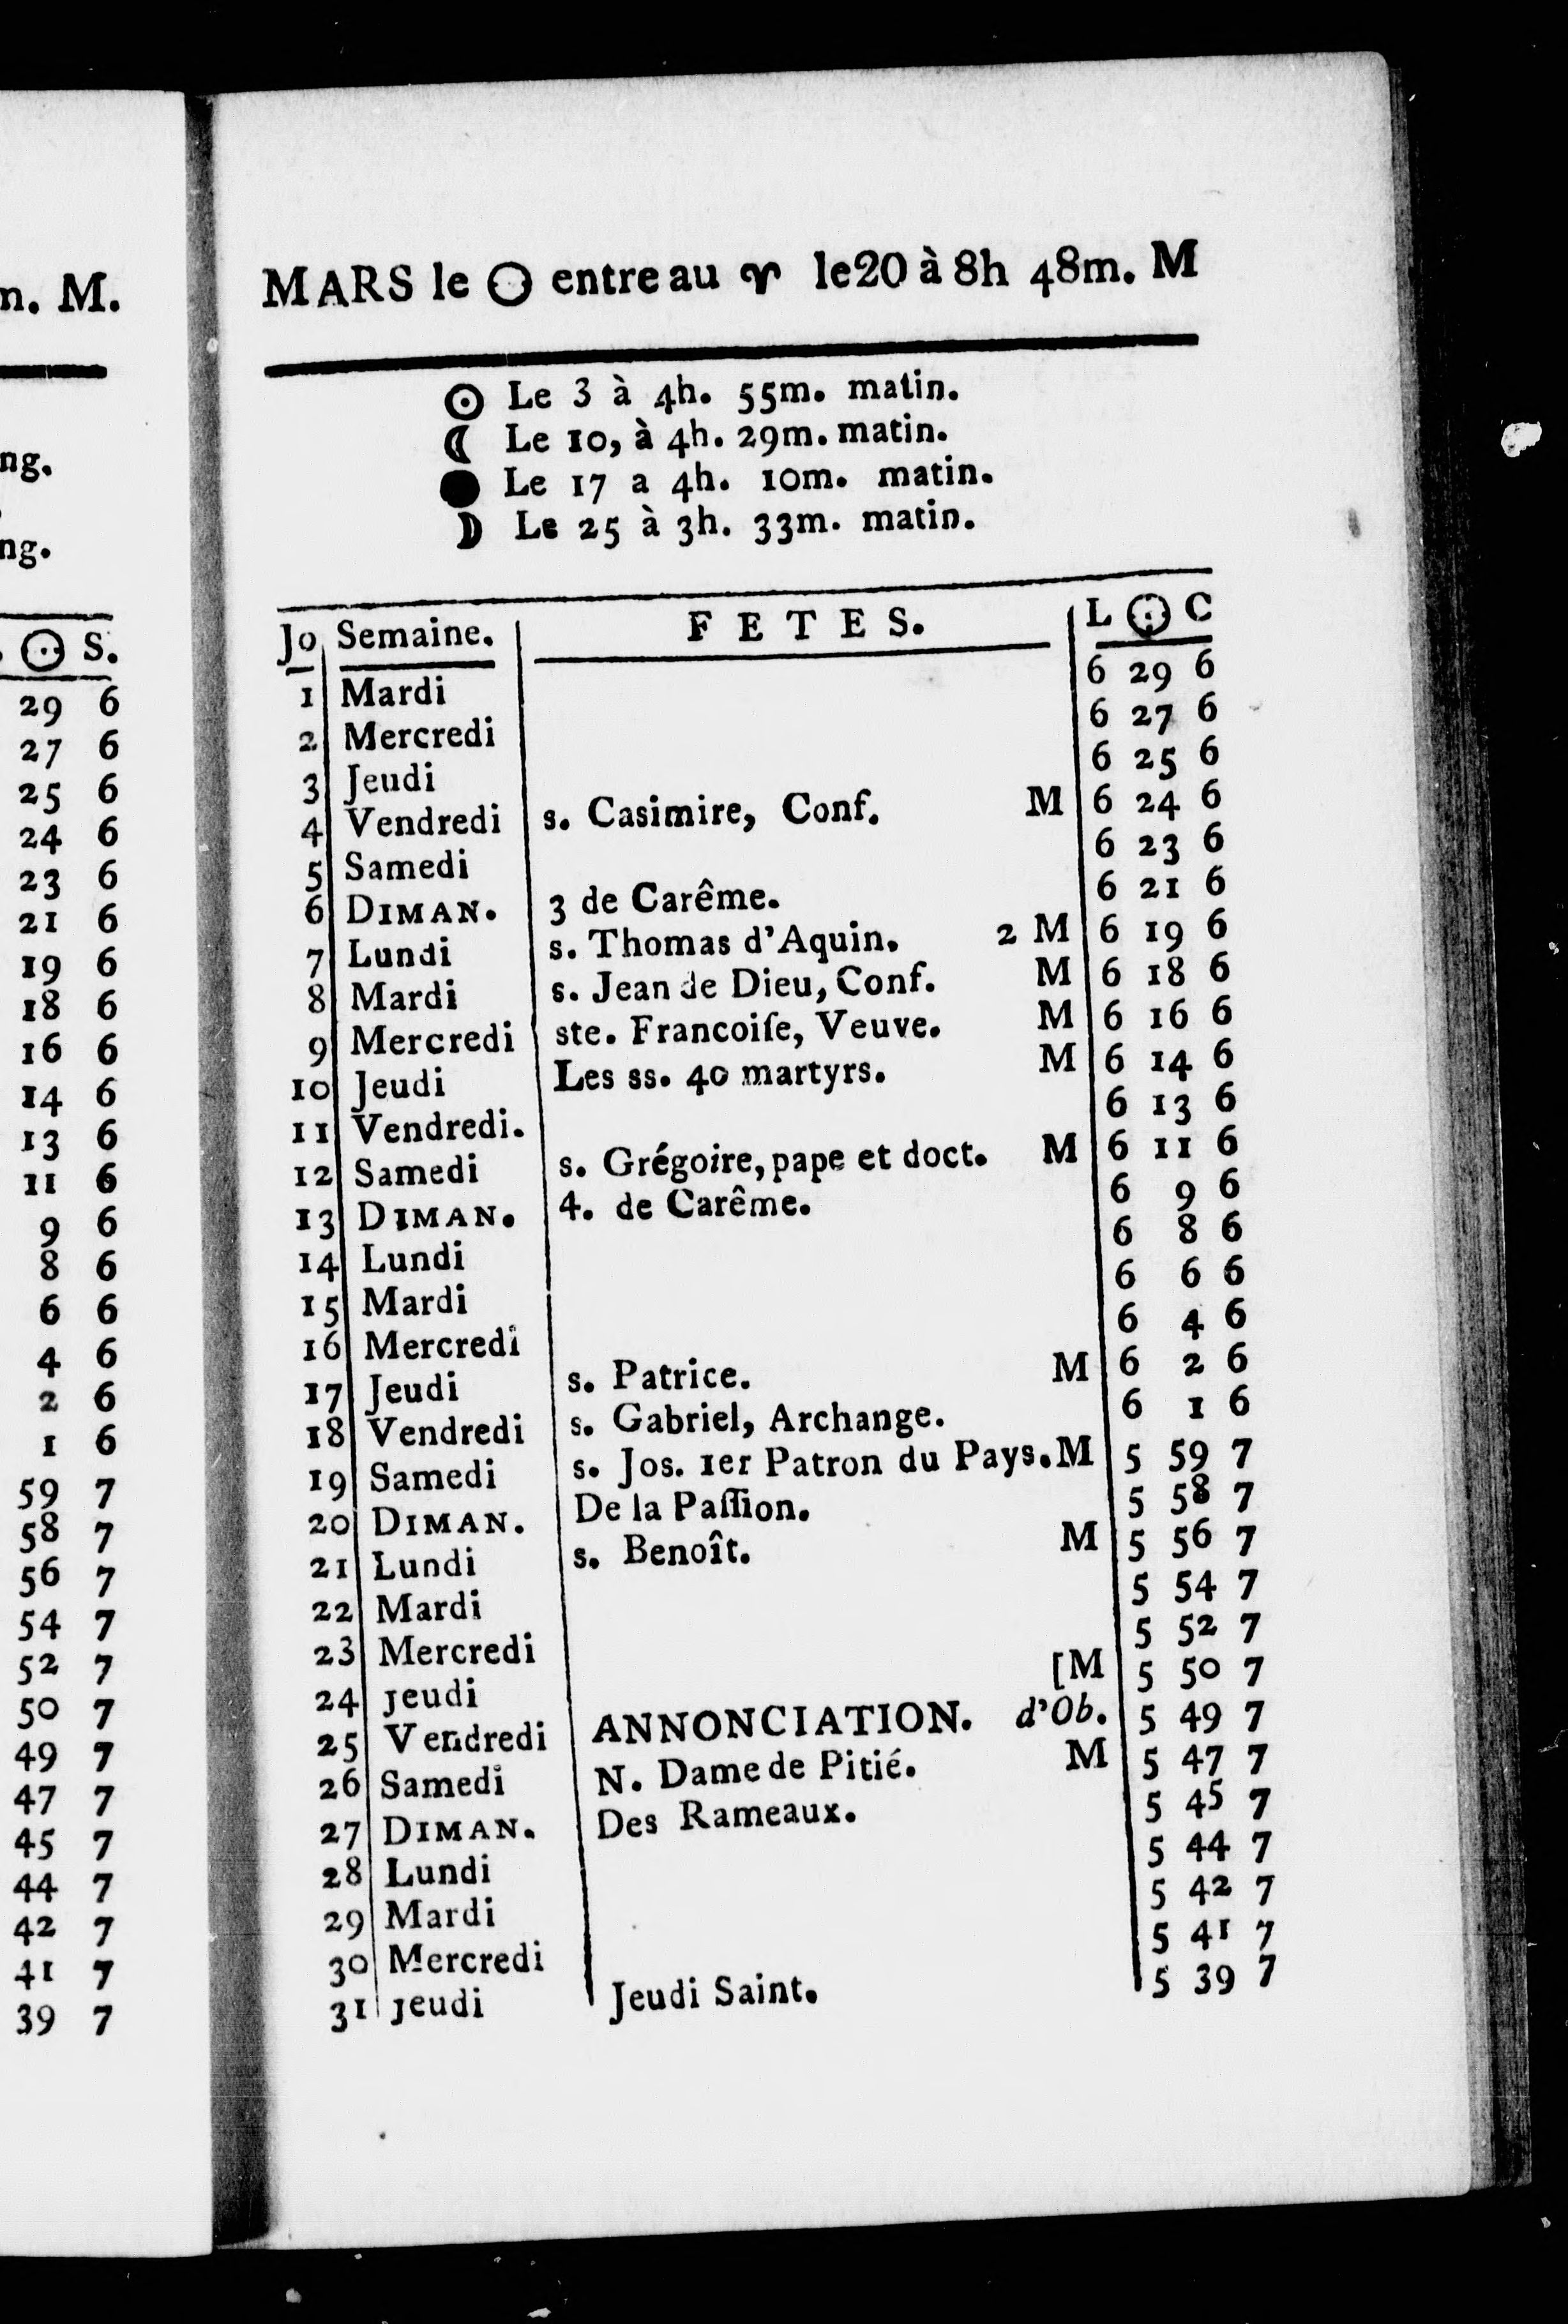 n. M.
ng.
ng.
☉ S.
29 6
27 6
25 6
24 6
23 6
21 6
19 6
18 6
16 6
14 6
13 6
11 6
9 6
8 6
6 6
4 6
2 6
1 6
59 7
58 7
56 7
54 7
52 7
50 7
49 7
47 7
45 7
44 7
42 7
41 7
39 7
MARS le ◯ entre au ♈ le 20 à 8h 48m. M
☉ Le 3 à 4h. 55m. matin.
☾ Le 10, à 4h. 29m. matin.
● Le 17 a 4h. 10m. matin.
☽ Le 25 à 3h. 33m. matin.
Jo Semaine. FETES. L ☉ C
1 Mardi 6 29 6
2 Mercredi 6 27 6
3 Jeudi 6 25 6
4 Vendredi s. Casimire, Conf. M 6 24 6
5 Samedi 6 23 6
6 DIMAN. 3 de Carême. 6 21 6
7 Lundi s. Thomas d'Aquin. 2 M 6 19 6
8 Mardi s. Jean de Dieu, Conf. M 6 18 6
9 Mercredi ste. Francoiſe, Veuve. M 6 16 6
10 Jeudi Les ss. 40 martyrs. M 6 14 6
11 Vendredi. 6 13 6
12 Samedi s. Grégoire, pape et doct. M 6 11 6
13 DIMAN. 4. de Carême. 6 9 6
14 Lundi 6 8 6
15 Mardi 6 6 6
16 Mercredi 6 4 6
17 Jeudi s. Patrice. M 6 2 6
18 Vendredi s. Gabriel, Archange. 6 1 6
19 Samedi s. Jos. 1er Patron du Pays. M 5 59 7
20 DIMAN. De la Paſſion. 5 58 7
21 Lundi s. Benoît. M 5 56 7
22 Mardi 5 54 7
23 Mercredi 5 52 7
24 jeudi [M 5 50 7
25 Vendredi ANNONCIATION. d'Ob. 5 49 7
26 Samedi N. Dame de Pitié. M 5 47 7
27 DIMAN. Des Rameaux. 5 45 7
28 Lundi 5 44 7
29 Mardi 5 42 7
30 Mercredi 5 41 7
31 jeudi Jeudi Saint. 5 39 7